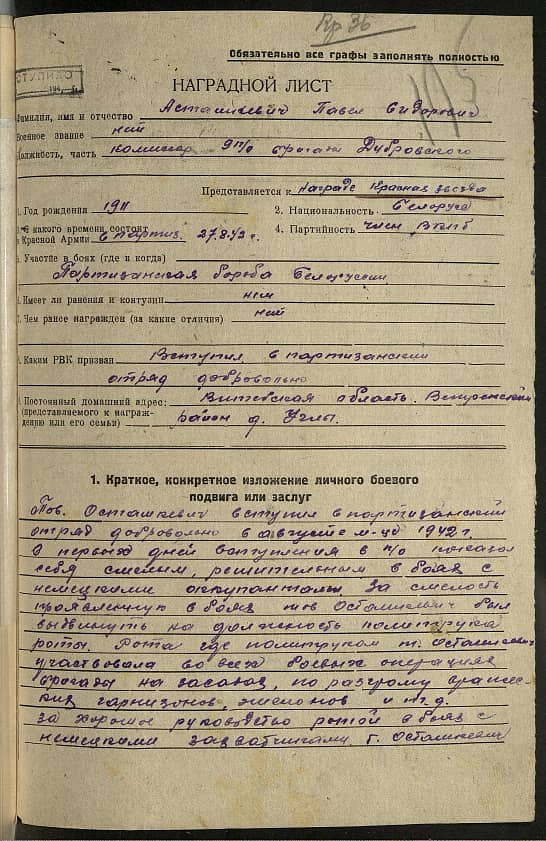 Кр 36
Обязательно все графы заполнять полностью
НАГРАДНОЙ ЛИСТ
Фамилия, имя и отчество Асташкевич Павел Сидорович
Военное звание нет
Должность, часть комиссар 9 п/о бригады Дубровского
Представляется к награде Красная звезда
1. Год рождения 1911 2. Национальность Белорус
3. С какого времени состоит
в Красной Армии в партиз. 27.8.42 г. 4. Партийность член ВКПб
5. Участие в боях (где и когда)
Партизанская борьба Белоруссии
6. Имеет ли ранения и контузии нет
7. Чем ранее награжден (за какие отличия) нет
8. Каким РВК призван Вступил в партизанский
отряд добровольно
9. Постоянный домашний адрес: Витебская область
(представляемого к награж-
дению или его семьи) район д. Углы.
1. Краткое, конкретное изложение личного боевого
подвига или заслуг
Тов. Осташкевич вступил в партизанский
отряд добровольно в августе м-це 1942 г.
С первых дней вступления в п/о показал
себя смелым, решительным в боях с
немецкими оккупантами. За смелость
проявленную в боях тов Осташкевич был
выдвинут на должность политрука
роты. Рота где политруком т. Осташкевич
участвовала во всех боевых операциях
бригады на засадах, по разгрому вражес-
ких гарнизонов, эшелонов и т.д.
За хорошое руководство ротой в боях с
немецкими захватчиками т. Осташкевич